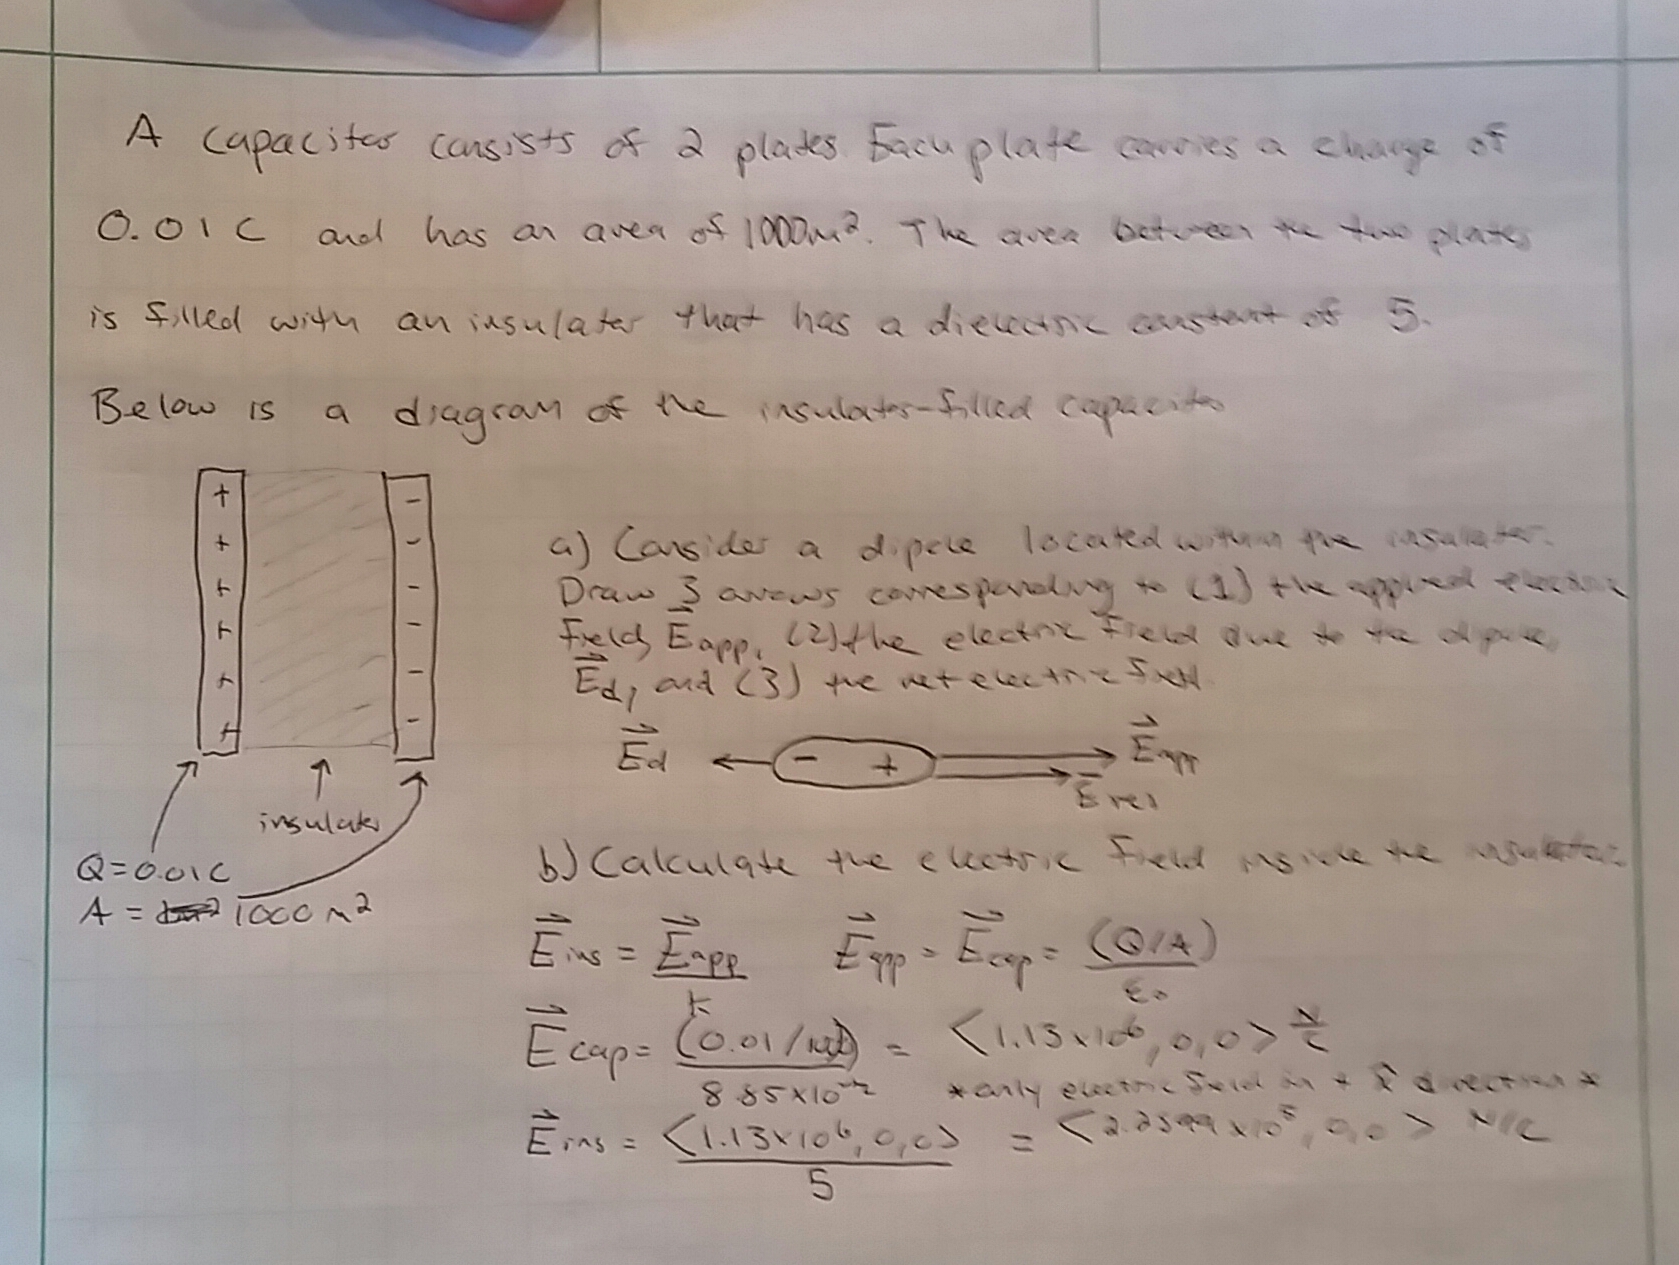 A capacitor consists of 2 plates. Each plate carries a charge of
0.01C and has an area of 1000m². The area between the two plates
is filled with an insulator that has a dielectric constant of 5.
Below is a diagram of the insulator-filled capacitor
+ −
+ −
+ −
+ −
+ −
+ −
insulator
Q=0.01C
A = 1000 m²
a) Consider a dipole located within the insulator.
Draw 3 arrows corresponding to (1) the applied electric
field, E⃗app, (2) the electric field due to the dipole,
E⃗d, and (3) the net electric field.
E⃗d − + E⃗app
b) Calculate the electric field inside the insulator.
E⃗ins = E⃗app / K E⃗app = E⃗cap = (Q/A) / ε₀
E⃗cap = (0.01/ ) / 8.85×10⁻¹² = <1.13×10⁶, 0, 0> N/C
*only electric field in + x̂ direction*
E⃗ins = <1.13×10⁶, 0, 0> / 5 = <2.2599×10⁵, 0, 0> N/C